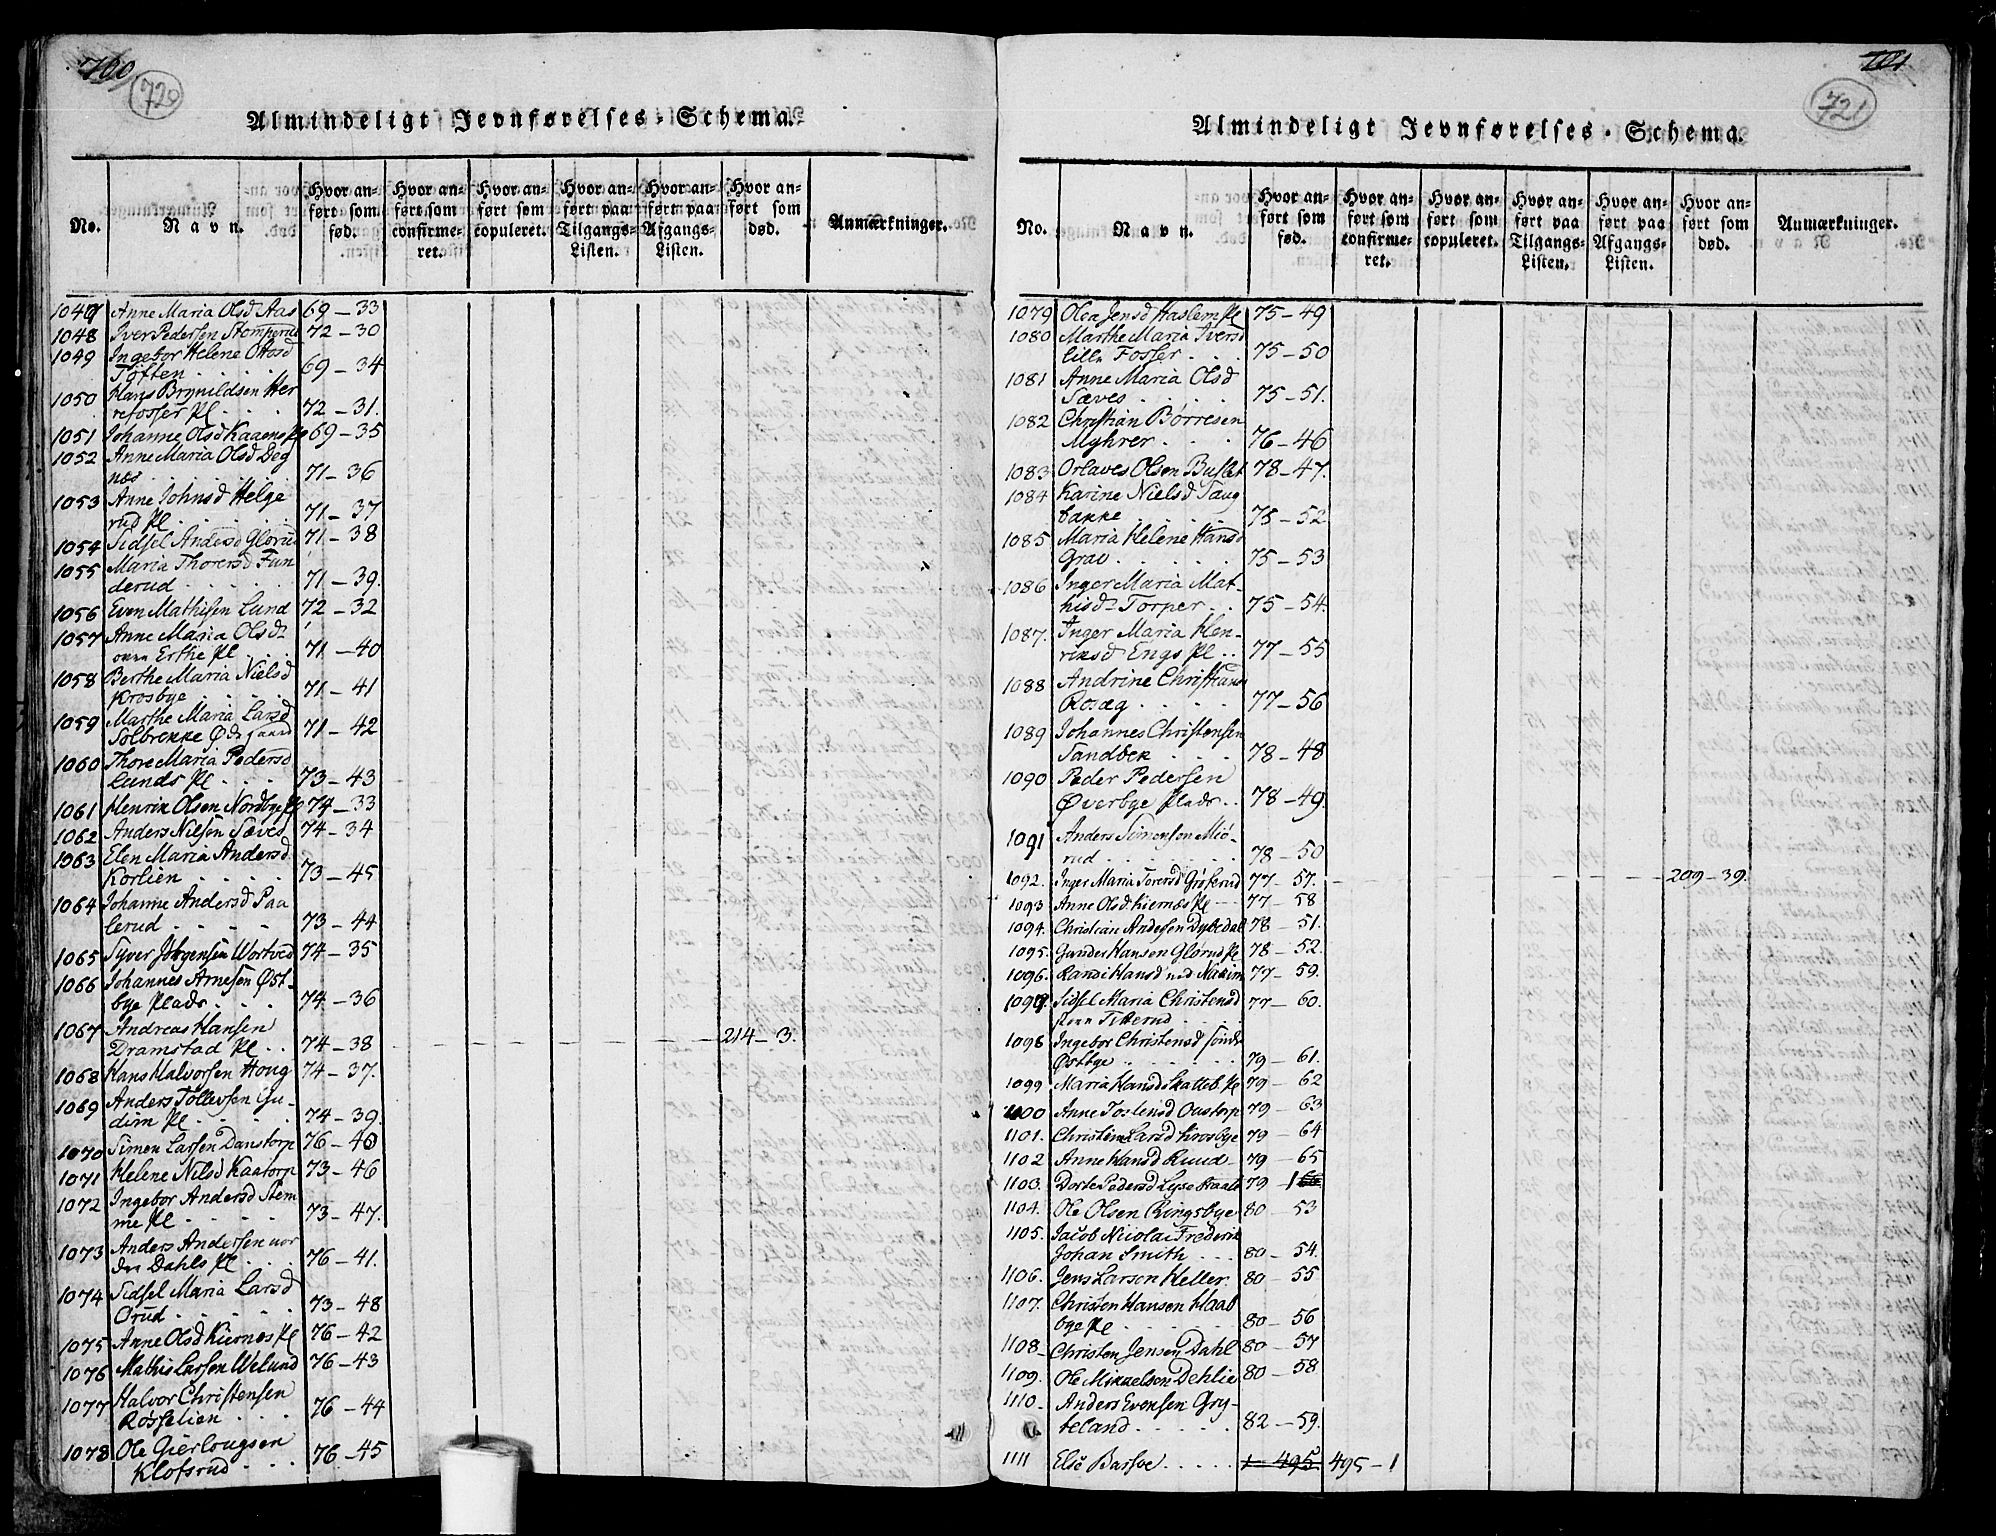 760
720
Almindeligt Jevnførelses-Schema.
No.
Navn.
Hvor anført som fød.
Hvor anført som confirmeret.
Hvor anført som copuleret.
Hvor anført paa Tilgangs-Listen.
Hvor anført paa Afgangs-Listen.
Hvor anført som død.
Anmærkninger.
1047 Anne Maria Olsd Aas 69-33
1048 Iver Pedersen Stomperud 72-30
1049 Ingebor Helene Ottosd
Toften . . . . 69-34
1050 Hans Brynildsen Her
refosser Pl . . . 72-31.
1051 Johanne Olsd Kaaens Pl 69-35
1052 Anne Maria Olsd Deg
næs . . . . 71-36
1053 Anne Johnsd Helge
rud Pl . . . . 71-37
1054 Sidsel Andersd Glorud 71-38
1055 Maria Thoresd Fun
derud . . . . 71-39.
1056 Even Mathisen Lund 72-32
1057 Anne Maria Olsd
Erthe Pl . . . 71-40
1058 Berthe Maria Nielsd
Krosbye . . . . 71-41
1059 Marthe Maria Larsd
Solbrekke Ødegaard 71-42
1060 Thore Maria Pedersd
Lunds Pl . . . 73-43
1061 Henrik Olsen Nordbye Pl 74-33
1062 Anders Nilsen Sæves 74-34
1063 Elen Maria Andersd
Korlien . . . . 73-45
1064 Johanne Andersd Paa
lerud . . . . 73-44
1065 Syver Jørgensen Wortved 74-35
1066 Johannes Arnesen Øst-
bye Plads . . . 74-36
1067 Andreas Hansen
Dramstad Pl . . 74-38 214-3.
1068 Hans Halvorsen Houg 74-37.
1069 Anders Tollevsen Gu-
dim Pl . . . . 74-39.
1070 Simen Larsen Danstorp 76-40
1071 Helene Nilsd Kaatorp 73-46
1072 Ingebor Andersd Stem
me Pl . . . . 73-47.
1073 Anders Andersen nor
dre Dahls Pl . . . 76-41.
1074 Sidsel Maria Larsd
Orud . . . . 73-48
1075 Anne Olsd Kiernes Pl 76-42
1076 Mathis Larsen Welund 76-43
1077 Halvor Christensen
Røsselien . . . 76-44
1078 Ole Gierlougsen
Klofsrud . . . 76-45
721
721
Almindeligt Jevnførelses-Schema.
No.
Navn.
Hvor anført som fød.
Hvor anført som confirmeret.
Hvor anført som copuleret.
Hvor anført paa Tilgangs-Listen.
Hvor anført paa Afgangs-Listen.
Hvor anført som død.
Anmærkninger.
1079 Olea Jensd Haslem Pl 75-49
1080 Marthe Maria Iversd
lille Fosser . . . 75-50
1081 Anne Maria Olsd
Sæves . . . . 75-51.
1082 Christian Børresen
Myhrer . . . 76-46
1083 Orlaves Olsen Buslet 78-47.
1084 Karine Nielsd Taug
bakke . . . . 75-52
1085 Maria Helene Hansd
Grav . . . . . 75-53
1086 Inger Maria Mat-
hisd Torper . . 75-54.
1087. Inger Maria Hen-
riksd Engs Pl . . 77-55
1088 Andrine Christians
Rosæg . . . . 77-56
1089 Johannes Christensen
Sandbek . . . 78-48
1090 Peder Pedersen
Øverbye Plads . . 78-49
1091 Anders Simensen Miø-
rud . . . . . . 78-50
1092. Inger Maria Toresd Grøferud 77-57. 209-39.
1093 Anne Olsd Kiernæs Pl 77-58
1094. Christian Andersen Dybedal 78-51.
1095. Gunder Hansen Glørud Pl 78-52.
1096. Randi Hansd ned Nakim 77-59.
1097. Sidsel Maria Christensd 77-60.
store Titterud . . .
1098 Ingebor Christensd søndr
Østbye . . . . . . 79-61.
1099 Maria Hansd Skatteb. Pl 79-62
1100 Anne Torstensd Oustorp 79-63
1101. Christine Larsd Krosbye 79-64
1102 Anne Hansd Ruud 79-65
1103. Dorte Pedersd Lyse Haalt 79-1
1104. Ole Olsen Ringsbye 80-53
1105. Jacob Nicolai Frederik
Johan Smith . . . 80-54.
1106. Jens Larsen Heller. 80-55
1107. Christen Hansen Haab
bye Pl . . . . . 80-56
1108. Christen Jensen Dahl 80-57
1109. Ole Mikaelsen Dehlie 80-58
1110. Anders Evensen Gry-
teland . . . . . 82-59.
1111 Else Barfoe . . . . . 1-495 495-1